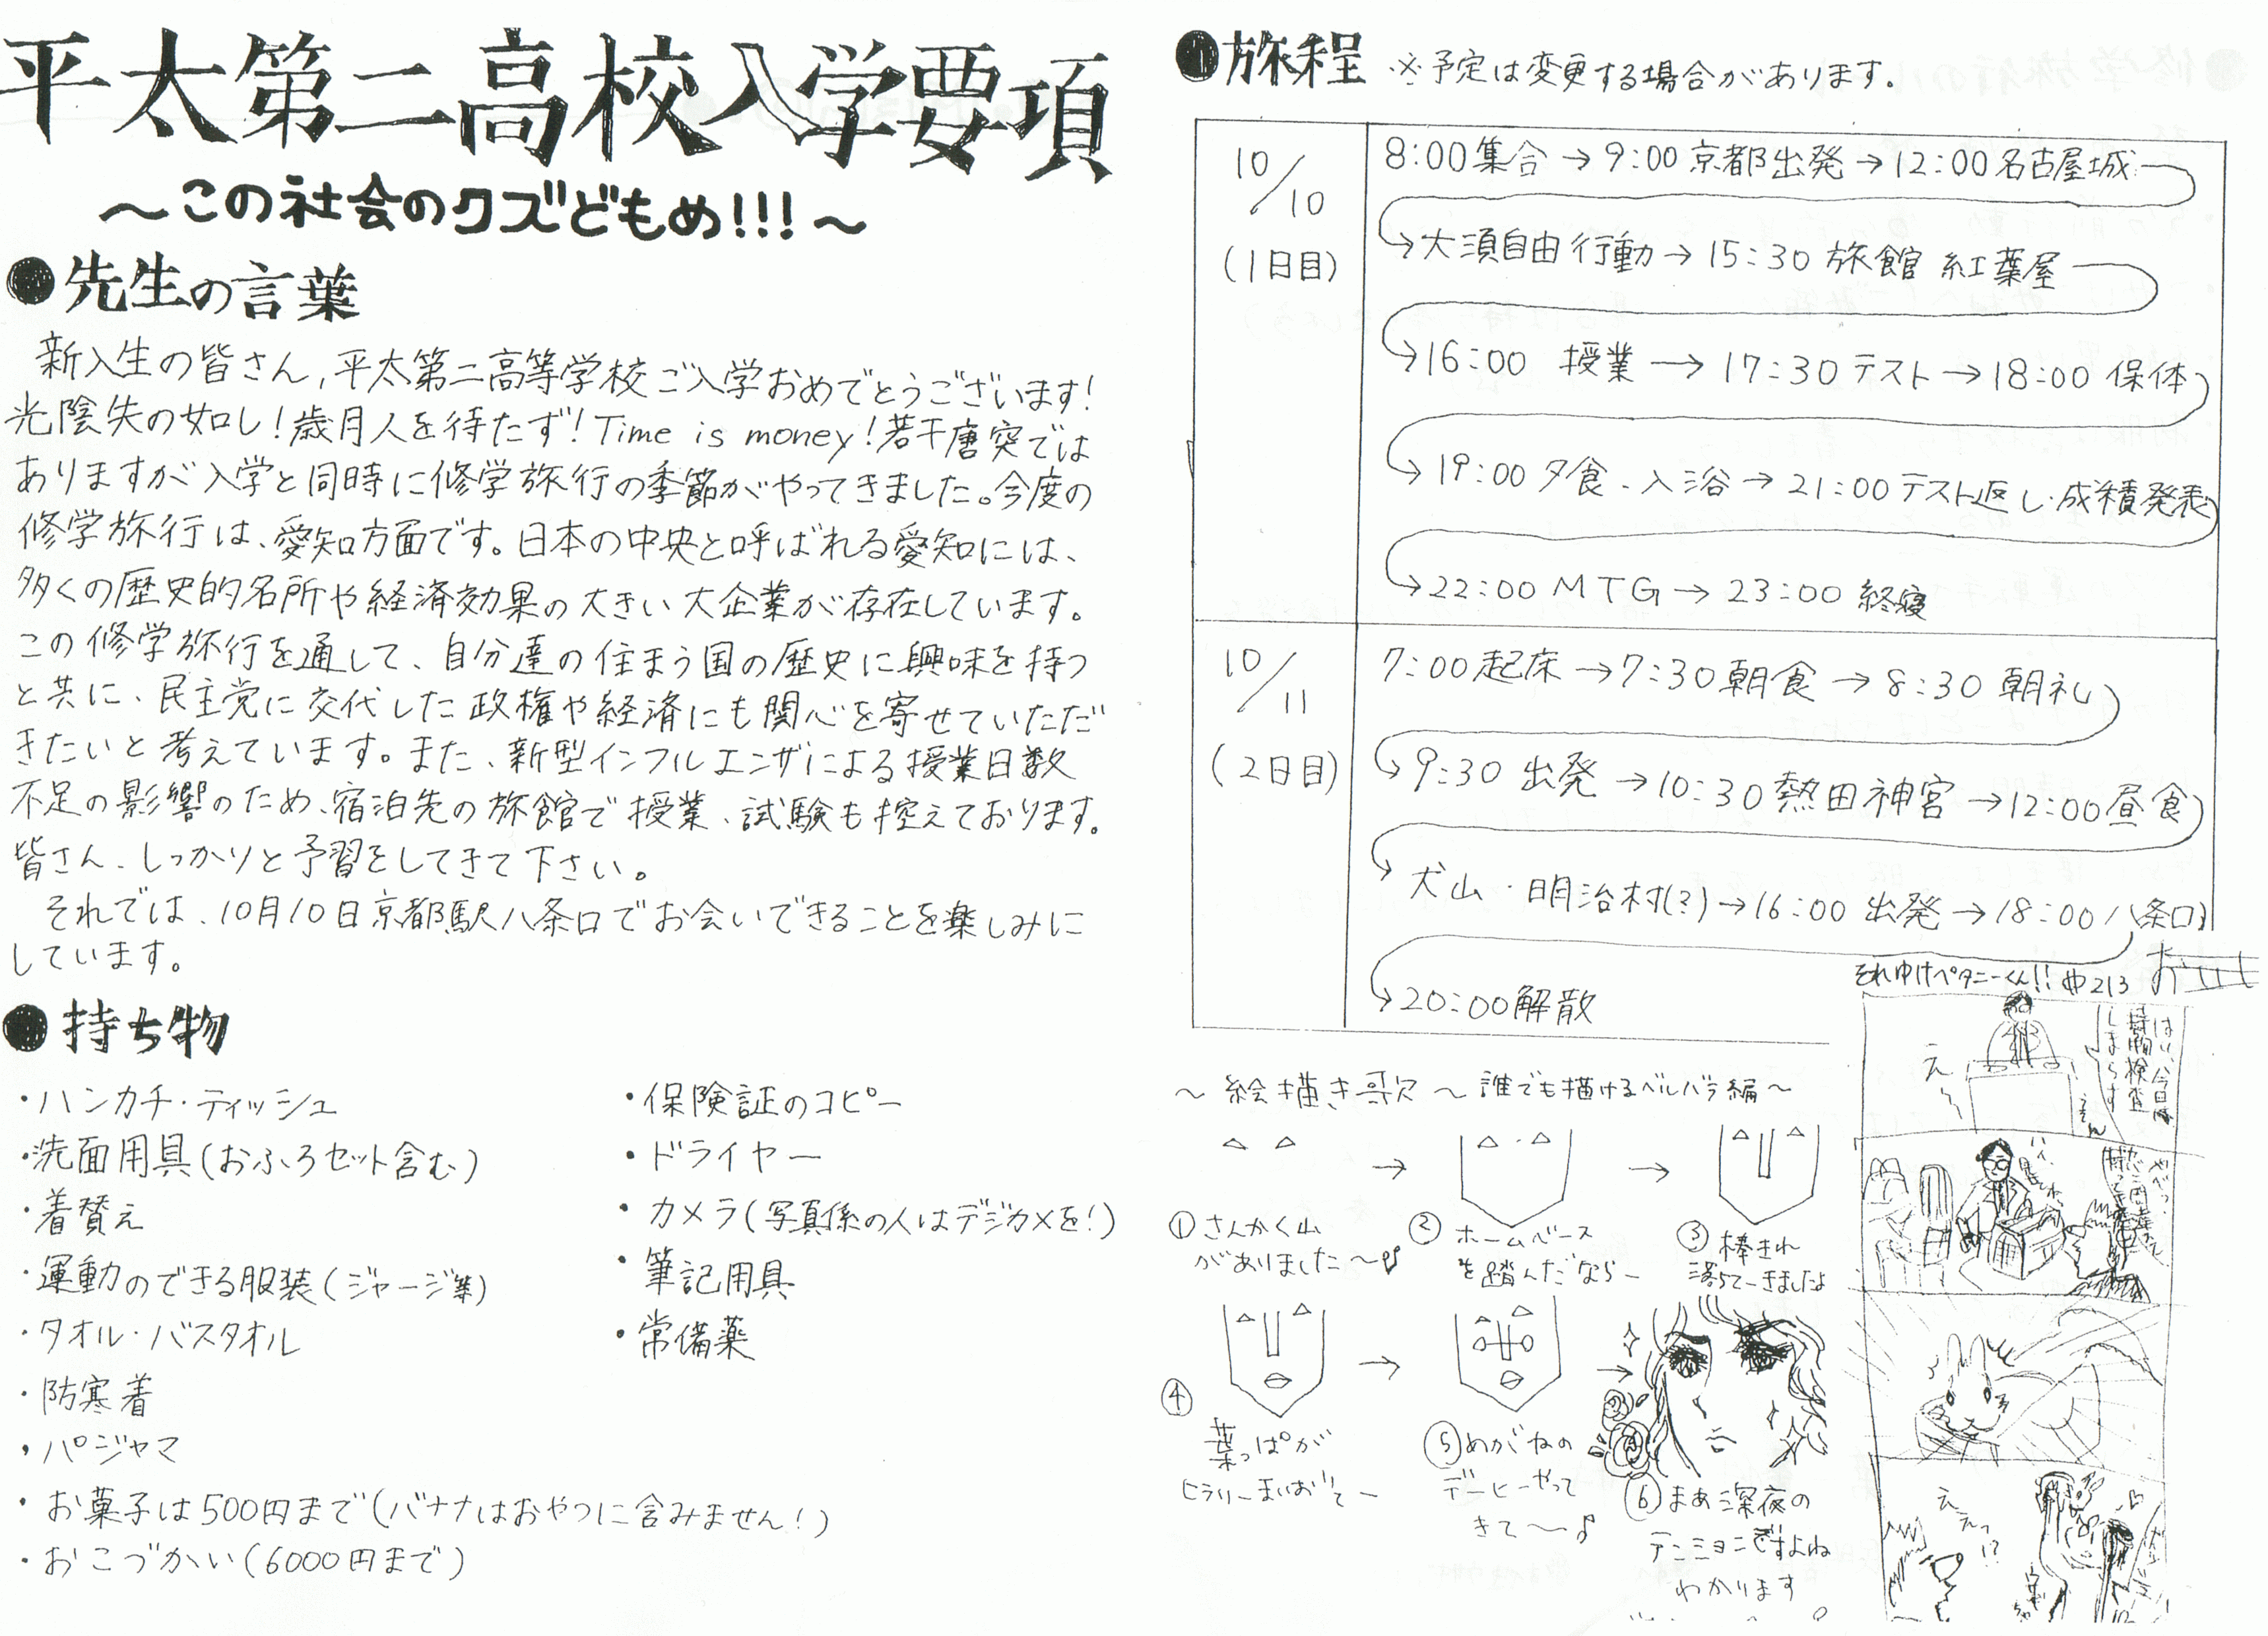 平太第二高校入学要項
～この社会のクズどもめ!!!～
●先生の言葉
新入生の皆さん,平太第二高等学校ご入学おめでとうございます!
光陰矢の如し!歳月人を待たず!Time is money!若干唐突では
ありますが入学と同時に修学旅行の季節がやってきました。今度の
修学旅行は、愛知方面です。日本の中央と呼ばれる愛知には、
多くの歴史的名所や経済効果の大きい大企業が存在しています。
この修学旅行を通して、自分達の住まう国の歴史に興味を持つ
と共に、民主党に交代した政権や経済にも関心を寄せていただ
きたいと考えています。また、新型インフルエンザによる授業日数
不足の影響のため、宿泊先の旅館で授業、試験も控えております。
皆さん、しっかりと予習をしてきて下さい。
それでは、10月10日京都駅八条口でお会いできることを楽しみに
しています。
●持ち物
・ハンカチ・ティッシュ
・洗面用具(おふろセット含む)
・着替え
・運動のできる服装(ジャージ等)
・タオル・バスタオル
・防寒着
・パジャマ
・お菓子は500円まで(バナナはおやつに含みません!)
・おこづかい(6000円まで)
・保険証のコピー
・ドライヤー
・カメラ(写真係の人はデジカメを!)
・筆記用具
・常備薬
●旅程 ※予定は変更する場合があります.
10/10
(1日目)
8:00集合→9:00京都出発→12:00名古屋城
→大須自由行動→15:30旅館 紅葉屋
→16:00 授業→17:30テスト→18:00保体
→19:00夕食、入浴→21:00テスト返し・成績発表
→22:00 MTG→23:00 終寝
10/11
(2日目)
7:00起床→7:30朝食→8:30朝礼
→9:30 出発→10:30熱田神宮→12:00昼食
→犬山・明治村(?)→16:00出発→18:00八条口
→20:00解散
～絵描き歌～誰でも描けるベルバラ編～
①さんかく山
がありました～♪
②ホームベース
を踏んだなら～
③棒きれ
落ちてーきましたよ
④葉っぱが
ヒラリーまいおてー
⑤めがねの
デービーやって
きて～♪
⑥まぁ深夜の
テンションですよね
わかります
それゆけペタニーくん!! 中213
はい、今日は
持物検査
しまーす
え～
ええっ!?